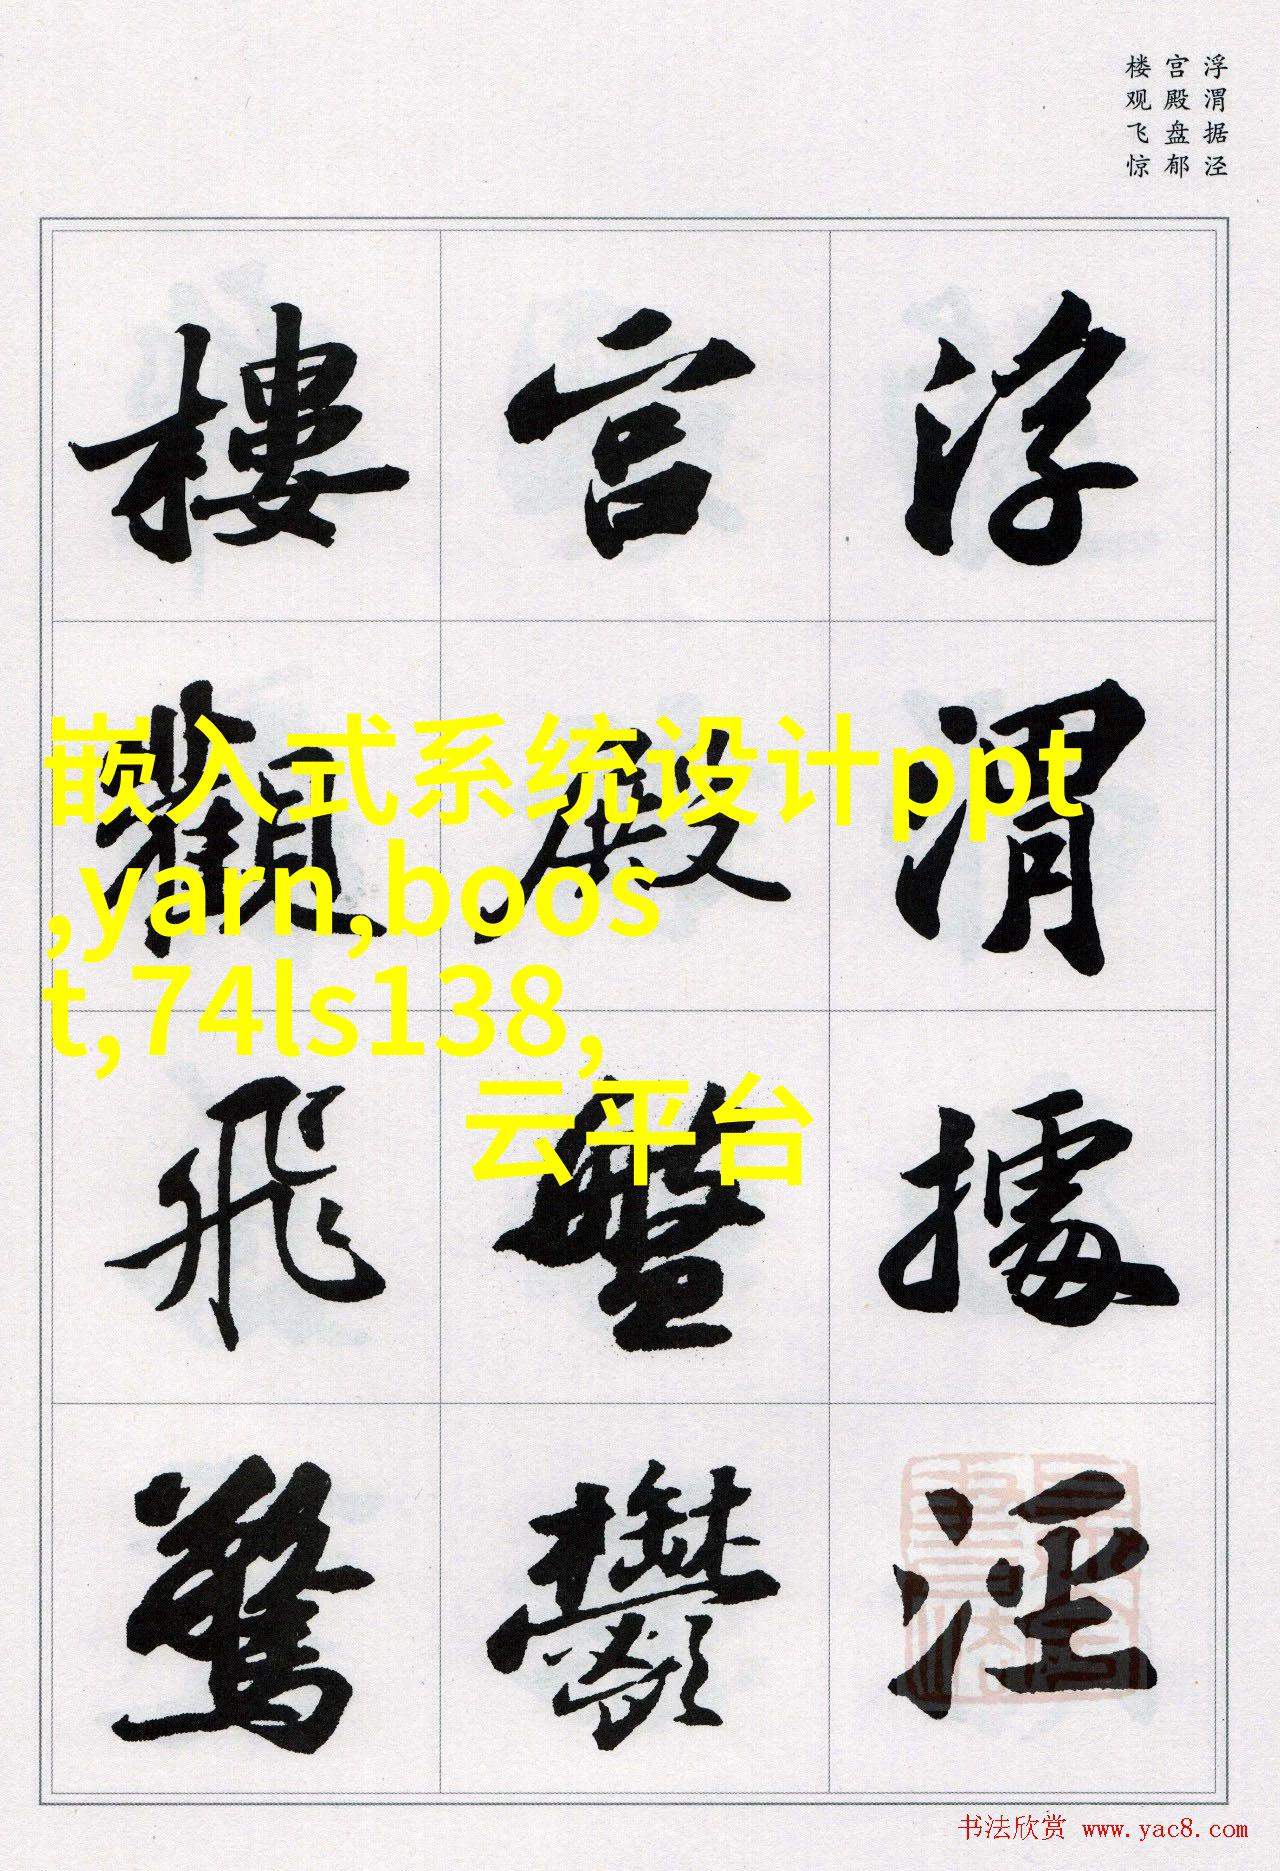 浮渭据泾
宫殿盘郁
楼观飞惊
浮渭據涇
宫殿盤鬱
樓觀飛驚
嵌入式系统设计ppt
,yarn,boos
t,74ls138,
云平台
书法欣赏 www.yac8.com